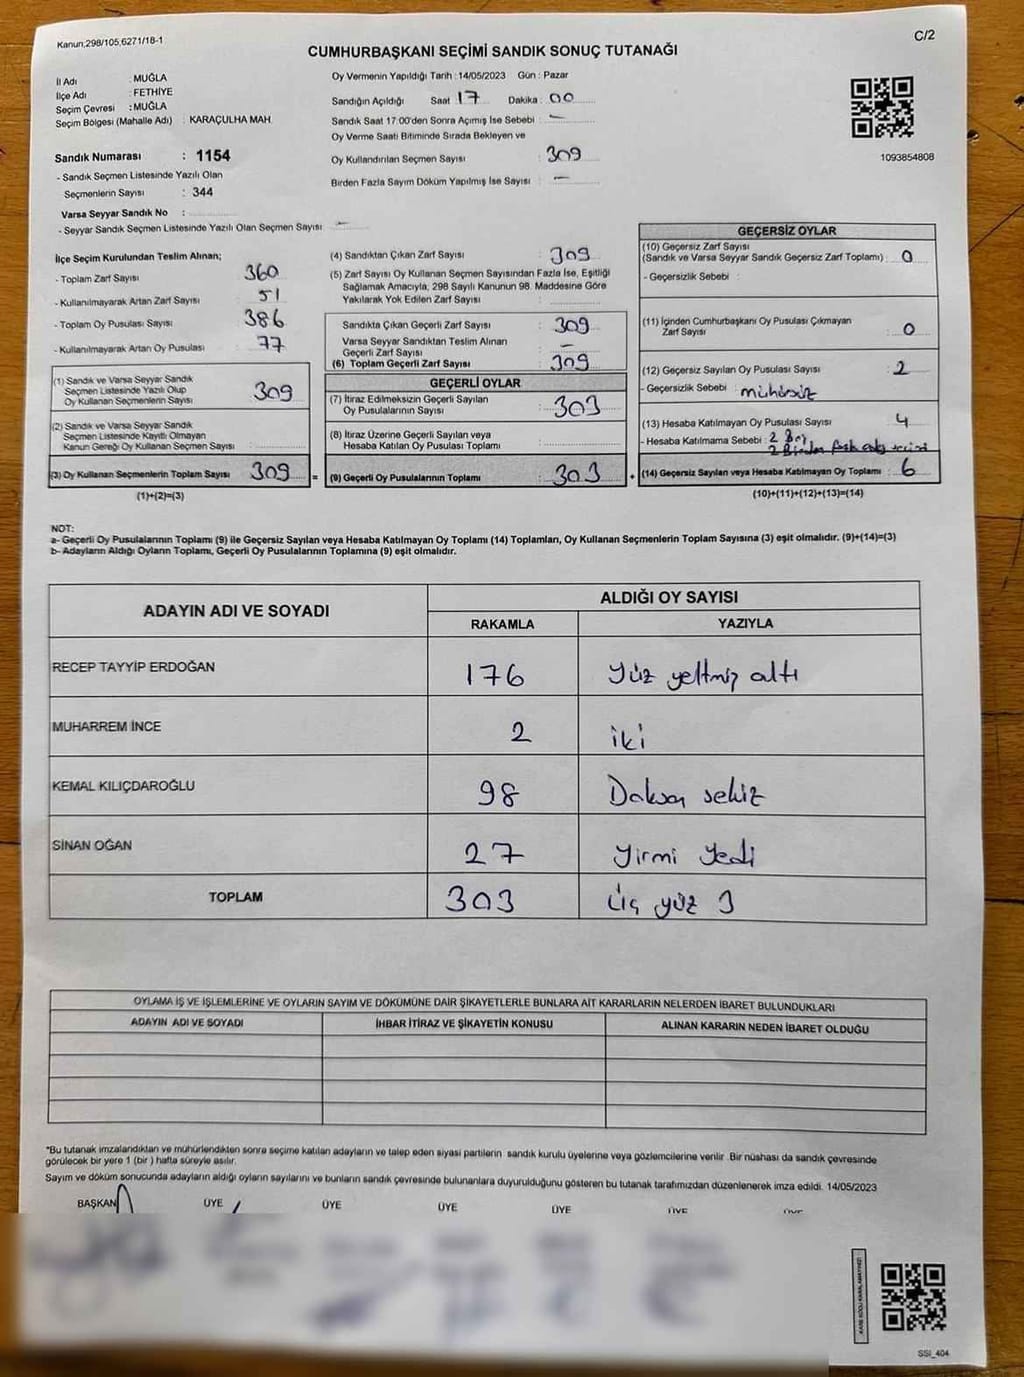 Kanun,298/105,6271/18-1
C/2
CUMHURBAŞKANI SEÇİMİ SANDIK SONUÇ TUTANAĞI
İl Adı : MUĞLA
İlçe Adı : FETHİYE
Seçim Çevresi : MUĞLA
Seçim Bölgesi (Mahalle Adı) : KARAÇULHA MAH.
Sandık Numarası : 1154
- Sandık Seçmen Listesinde Yazılı Olan
Seçmenlerin Sayısı : 344
Varsa Seyyar Sandık No :
- Seyyar Sandık Seçmen Listesinde Yazılı Olan Seçmen Sayısı : -
Oy Vermenin Yapıldığı Tarih : 14/05/2023 Gün : Pazar
Sandığın Açıldığı Saat 17 Dakika : 00
Sandık Saat 17:00'den Sonra Açımış İse Sebebi : -
Oy Verme Saati Bitiminde Sırada Bekleyen ve
Oy Kullandırılan Seçmen Sayısı : 309
Birden Fazla Sayım Döküm Yapılmış İse Sayısı : -
1093854808
İlçe Seçim Kurulundan Teslim Alınan;
- Toplam Zarf Sayısı 360
- Kullanılmayarak Artan Zarf Sayısı : 51
- Toplam Oy Pusulası Sayısı 386
- Kullanılmayarak Artan Oy Pusulası : 77
(1) Sandık ve Varsa Seyyar Sandık
Seçmen Listesinde Yazılı Olup
Oy Kullanan Seçmenlerin Sayısı : 309
(2) Sandık ve Varsa Seyyar Sandık
Seçmen Listesinde Kayıtlı Olmayan
Kanun Gereği Oy Kullanan Seçmen Sayısı :
(3) Oy Kullanan Seçmenlerin Toplam Sayısı : 309
(1)+(2)=(3)
(4) Sandıktan Çıkan Zarf Sayısı : 309
(5) Zarf Sayısı Oy Kullanan Seçmen Sayısından Fazla İse, Eşitliği
Sağlamak Amacıyla, 298 Sayılı Kanunun 98. Maddesine Göre
Yakılarak Yok Edilen Zarf Sayısı :
Sandıkta Çıkan Geçerli Zarf Sayısı : 309
Varsa Seyyar Sandıktan Teslim Alınan
Geçerli Zarf Sayısı : -
(6) Toplam Geçerli Zarf Sayısı : 309
GEÇERLİ OYLAR
(7) İtiraz Edilmeksizin Geçerli Sayılan
Oy Pusulalarının Sayısı : 303
(8) İtiraz Üzerine Geçerli Sayılan veya
Hesaba Katılan Oy Pusulası Toplamı :
= (9) Geçerli Oy Pusulalarının Toplamı : 303
GEÇERSİZ OYLAR
(10) Geçersiz Zarf Sayısı
(Sandık ve Varsa Seyyar Sandık Geçersiz Zarf Toplamı) : 0
- Geçersizlik Sebebi :
(11) İçinden Cumhurbaşkanı Oy Pusulası Çıkmayan
Zarf Sayısı : 0
(12) Geçersiz Sayılan Oy Pusulası Sayısı : 2
- Geçersizlik Sebebi : mühürsüz
(13) Hesaba Katılmayan Oy Pusulası Sayısı : 4
- Hesaba Katılmama Sebebi : 2
2 Birden
+ (14) Geçersiz Sayılan veya Hesaba Katılmayan Oy Toplamı : 6
(10)+(11)+(12)+(13)=(14)
NOT:
a- Geçerli Oy Pusulalarının Toplamı (9) ile Geçersiz Sayılan veya Hesaba Katılmayan Oy Toplamı (14) Toplamları, Oy Kullanan Seçmenlerin Toplam Sayısına (3) eşit olmalıdır. (9)+(14)=(3)
b- Adayların Aldığı Oyların Toplamı, Geçerli Oy Pusulalarının Toplamına (9) eşit olmalıdır.
ADAYIN ADI VE SOYADI
ALDIĞI OY SAYISI
RAKAMLA YAZIYLA
RECEP TAYYİP ERDOĞAN 176 Yüz yetmiş altı
MUHARREM İNCE 2 iki
KEMAL KILIÇDAROĞLU 98 Doksan sekiz
SİNAN OĞAN 27 Yirmi Yedi
TOPLAM 303 Üç yüz 3
OYLAMA İŞ VE İŞLEMLERİNE VE OYLARIN SAYIM VE DÖKÜMÜNE DAİR ŞİKAYETLERLE BUNLARA AİT KARARLARIN NELERDEN İBARET BULUNDUKLARI
ADAYIN ADI VE SOYADI İHBAR İTİRAZ VE ŞİKAYETİN KONUSU ALINAN KARARIN NEDEN İBARET OLDUĞU
*Bu tutanak imzalandıktan ve mühürlendikten sonra seçime katılan adayların ve talep eden siyasi partilerin sandık kurulu üyelerine veya gözlemcilerine verilir. Bir nüshası da sandık çevresinde
görülecek bir yere 1 (bir) hafta süreyle asılır.
Sayım ve döküm sonucunda adayların aldığı oyların sayılarını ve bunların sandık çevresinde bulunanlara duyurulduğunu gösteren bu tutanak tarafımızdan düzenlenerek imza edildi. 14/05/2023
BAŞKAN ÜYE ÜYE ÜYE ÜYE ÜYE ÜYE
KARE KODU KARALAMAYINIZ!
SSI_404